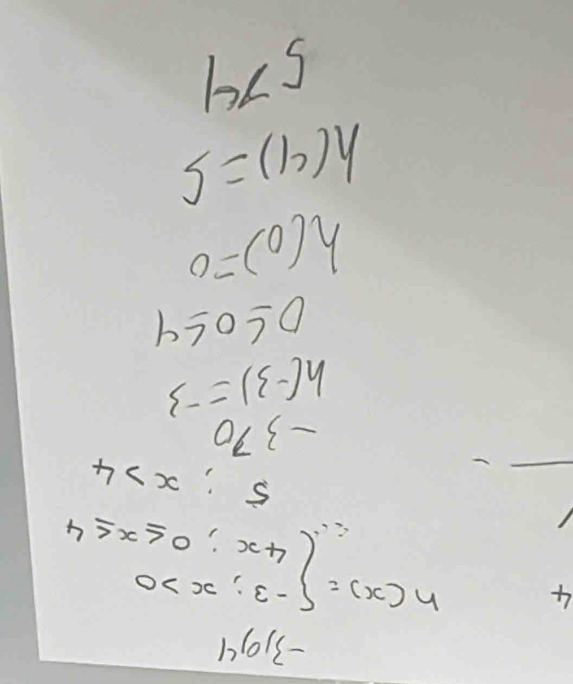 -3,0,4
h(x) = { -3 ; x > 0
4x ; 0 ≤ x ≤ 4
5 ; x > 4
-3 > 0
h(-3) = -3
0 ≤ 0 ≤ 4
h(0) = 0
h(4) = 5
5 > 4
4